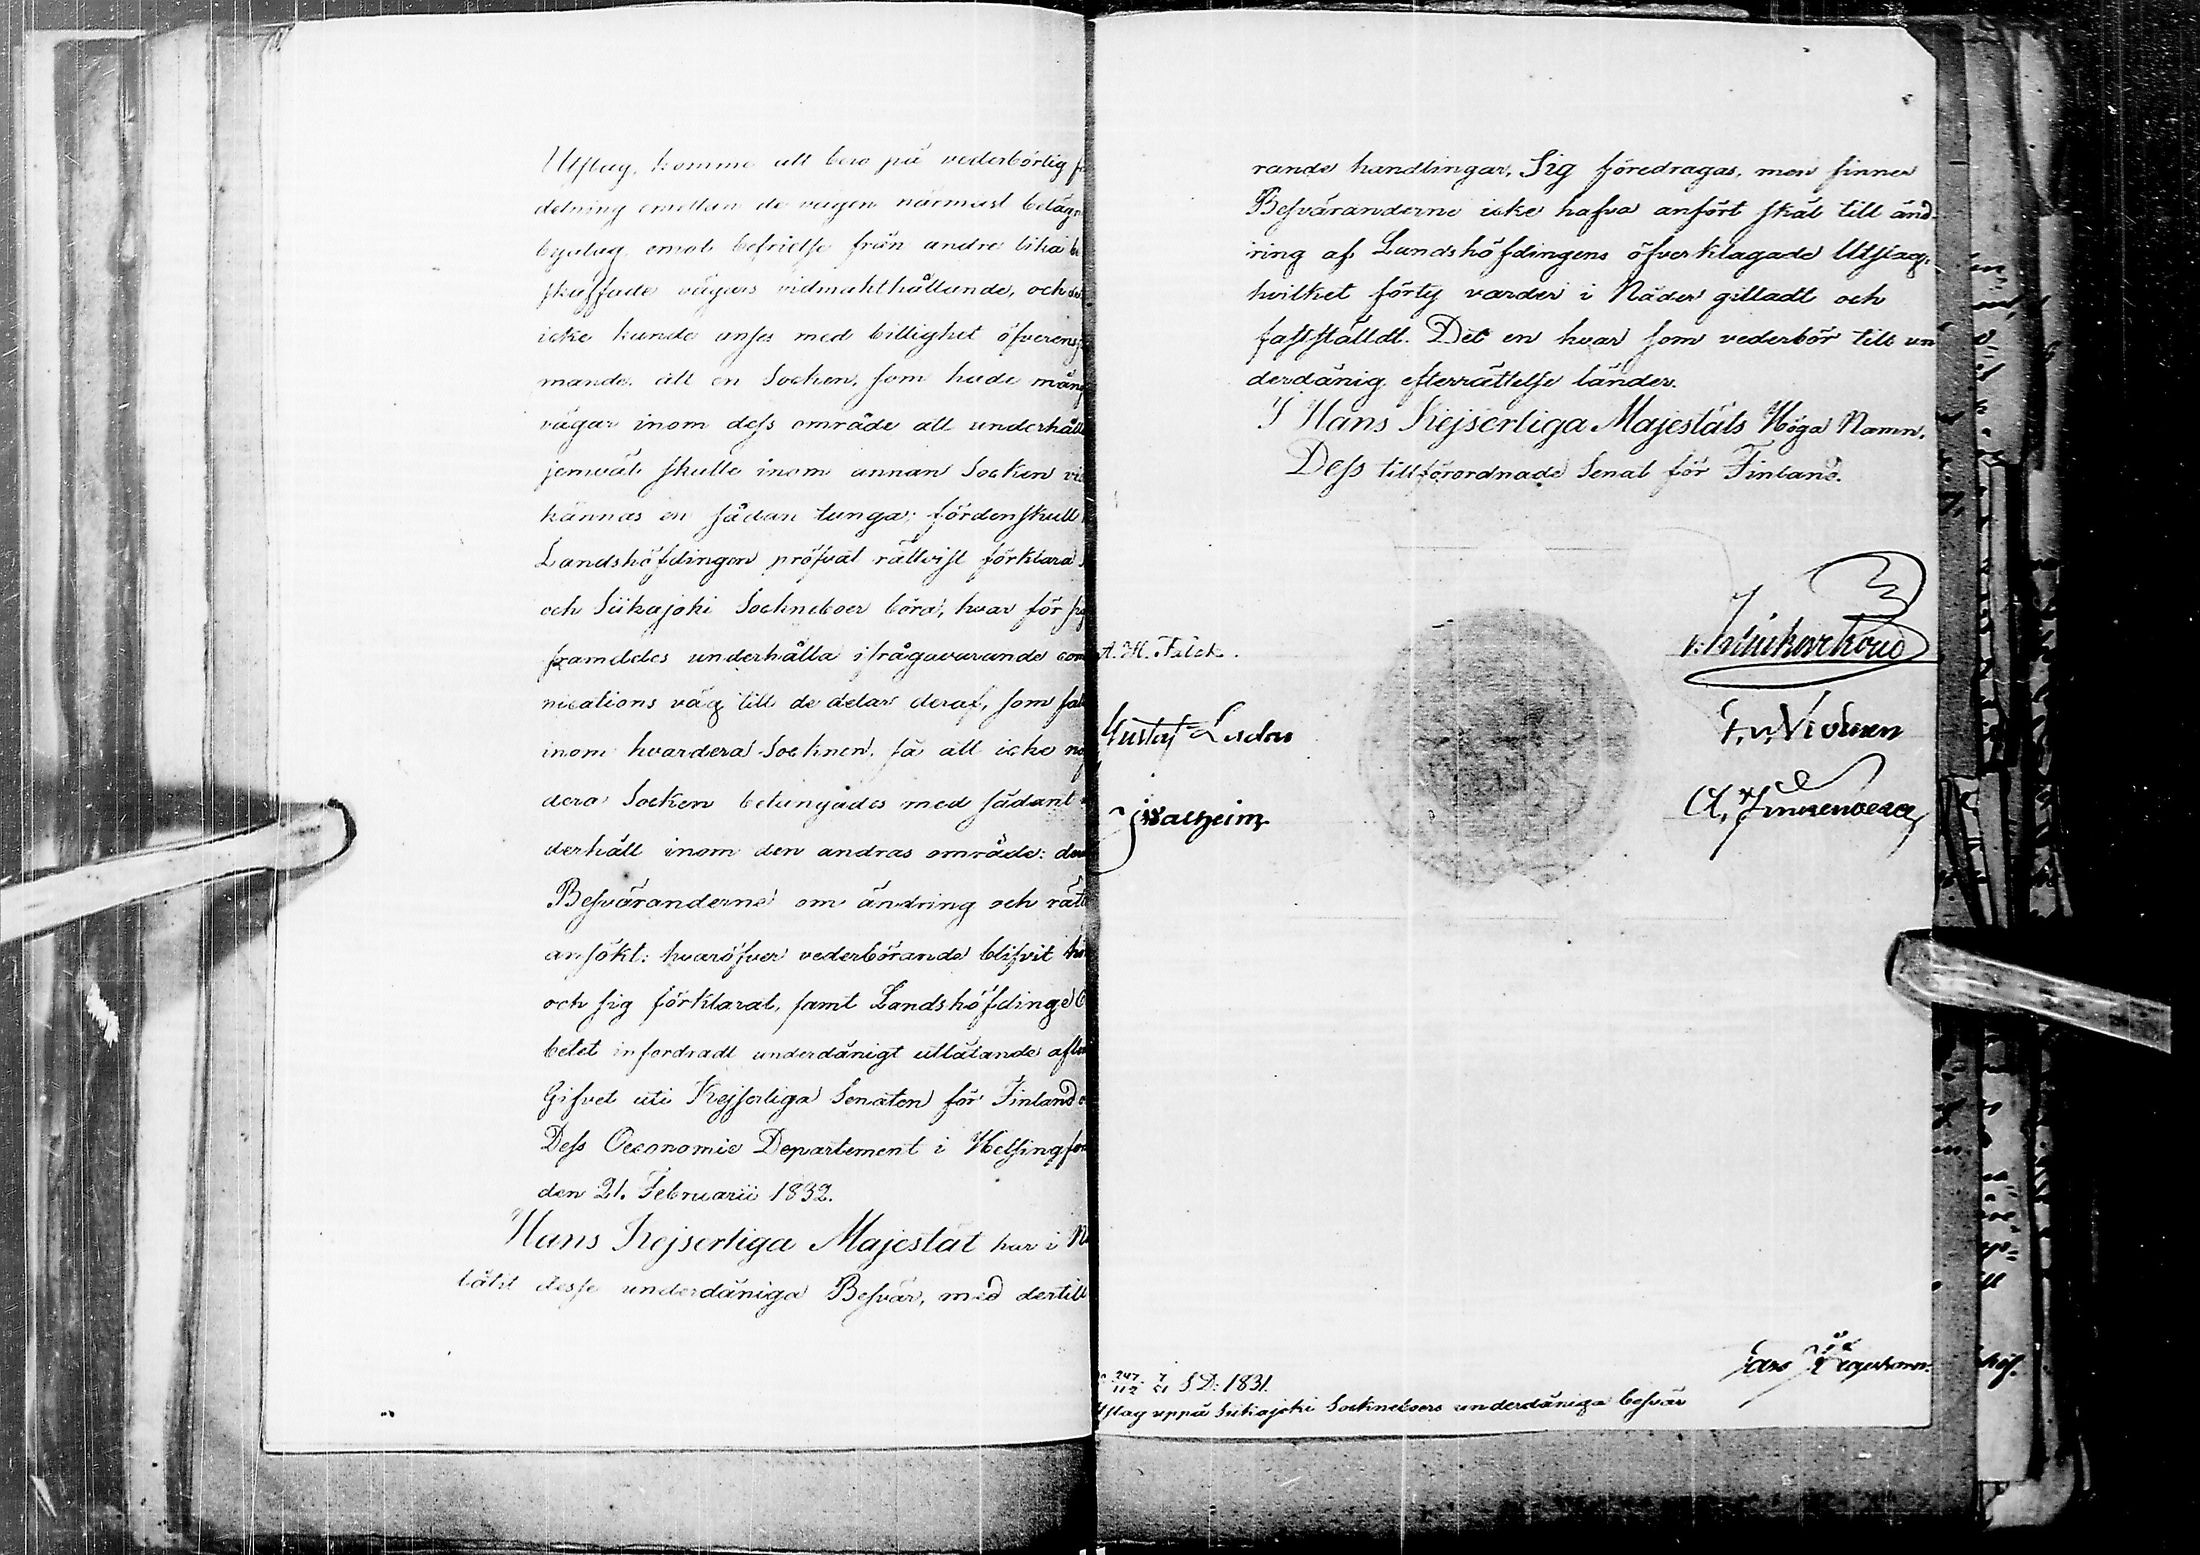 Utslag, komme att bero på vederbörlig fö
delning emellan de vägen närmast beläg
byalag emot befrielse från andre lika be
skaffade vägars vidmakthållande, och de
icke kunde anses med billighet öfverens
mande, att en Socken, som hade mång
vägar inom dess område att underhåll
jemväl skulle inom annan Socken vid
kännas en sådan tunga; fördenskull
Landshöfdingen pröfvat rättvist förklara
och Siikajoki Sockneboer böra, hvar för sig
framdeles underhålla ifrågavarande com
nications väg till de delar deraf, som fal
inom hvardera Socknen, så att icke nå
dera Socken betungades med sådant
derhåll inom den andras område: der
Besväranderne om ändring och rätt
ansökt: hvaröfver vederbörande blifvit hö
och sig förklarat, samt Landshöfdinge E
betet infordradt underdånigt utlåtande afl
Gifvet uti Kejserliga Senaten för Finland
Dess Oeconomie Departement i Helsingfor
den 21. Februarii 1832.
Hans Kejserliga Majestät har i N
låtit desse underdåniga Besvär, med dertill
rande handlingar, Sig föredragas, men finner
Besväranderne icke hafva anfört skäl till änd
ring af Landshöfdingens öfverklagade Utslag,
hvilket förty varder i Nåder gilladt och
fastställdt. Det en hvar som vederbör till un
derdånig efterrättelse länder.
I Hans Kejserliga Majestäts Höga Namn,
Dess tillförordnade Senat för Finland.
A. H. Falck.
Gustaf
J Walheim
S.D: 1831.
slag uppå Siikajoki Sockneboers underdåniga besvär